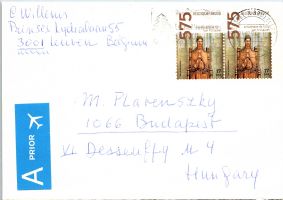 C Willems
Prinses Lydialaan 55
3001 Leuven Belgium
575
575
M. Plavenszky
1066 Budapest
VI Dessewffy u 4
Hungary
A PRIOR